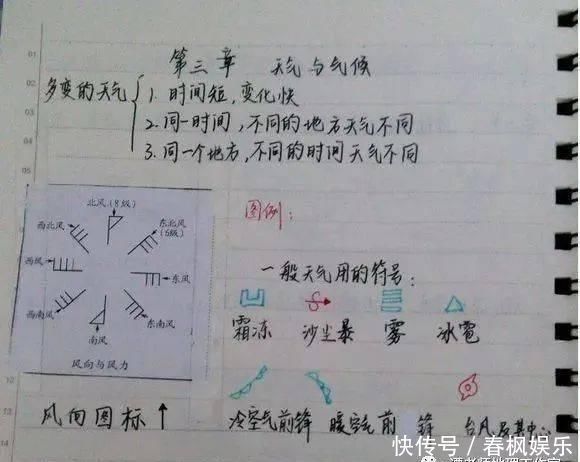 第三章 天气与气候
多变的天气
1. 时间短,变化快
2.同一时间,不同的地方天气不同
3.同一个地方,不同的时间天气不同
北风(8级)
西北风
东北风(6级)
西风
东风
西南风
东南风
南风
风向与风力
图例:
一般天气用的符号:
霜冻 沙尘暴 雾 冰雹
风向图标↑
冷空气前锋 暖空气前锋 台风及其中心
快传号/春枫娱乐
01
02
03
04
05
12
13
14